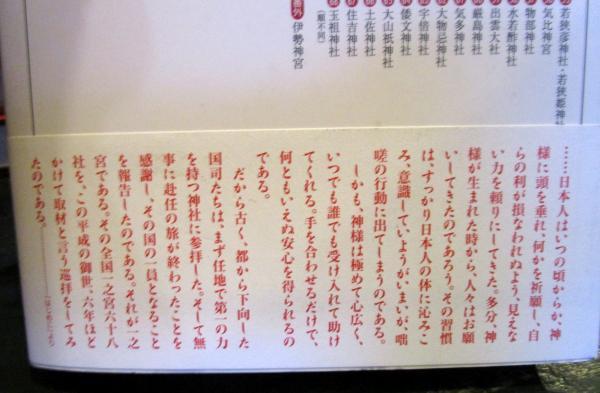 若狭彦神社・若狭姫神社
気比神宮
物部神社
水若酢神社
出雲大社
厳島神社
気多神社
大物忌神社
宇倍神社
倭文神社
大山祇神社
土佐神社
住吉神社
玉祖神社
(順不同)
番外 伊勢神宮
……日本人はいつの頃からか、神
様に頭を垂れ、何かを祈願し、自
らの利が損なわれぬよう、見えな
い力を頼りにしてきた。多分、神
様が生まれた時から、人々はお願
いしてきたのであろう。その習慣
は、すっかり日本人の体に沁みこ
み、意識していようがいまいが、咄
嗟の行動に出てしまうのである。
しかも、神様は極めて心広く、
いつでも誰でも受け入れて助け
てくれる。手を合わせるだけで、
何ともいえぬ安心を得られるの
である。
だから古く、都から下向した
国司たちは、まず任地で第一の力
を持つ神社に参拝した。そして無
事に赴任の旅が終わったことを
感謝し、その国の一員となること
を報告したのである。それが一之
宮である。その全国一之宮六十八
社を、この平成の御世、六年ほど
かけて取材と言う巡拝をしてみ
たのである。
「はじめに」より